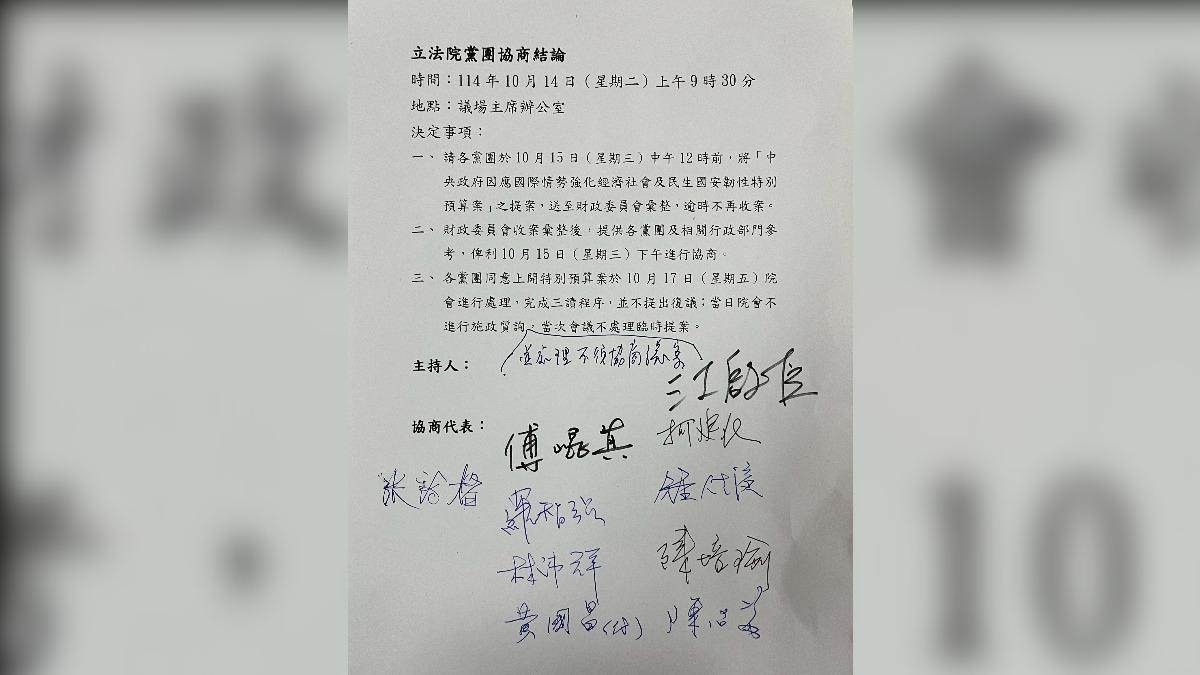 立法院黨團協商結論
時間：114年10月14日（星期二）上午9時30分
地點：議場主席辦公室
決定事項：
一、請各黨團於10月15日（星期三）中午12時前，將「中
央政府因應國際情勢強化經濟社會及民生國安韌性特別
預算案」之提案，送至財政委員會彙整，逾時不再收案。
二、財政委員會收案彙整後，提供各黨團及相關行政部門參
考，俾利10月15日（星期三）下午進行協商。
三、各黨團同意上開特別預算案於10月17日（星期五）院
會進行處理，完成三讀程序，並不提出復議；當日院會不
進行施政質詢，當次會議不處理臨時提案。
並處理不須協商議案
主持人：
江啟臣
協商代表：
傅崐萁
柯建銘
張啓楷
羅智強
鍾佳濱
林沛祥
陳培瑜
黃國昌(代)